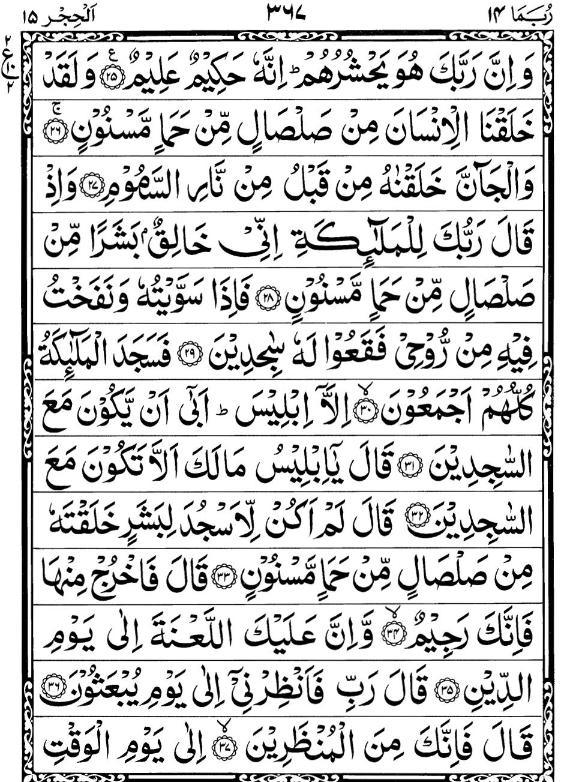 رُبَمَا ١٤ ٣٦٧ اَلْحِجْر ١٥
٢ ع ٢
وَ اِنَّ رَبَّكَ هُوَ يَحْشُرُهُمْ ؕ اِنَّهٗ حَكِيْمٌ عَلِيْمٌ ۧ ﴿٢٥﴾ وَ لَقَدْ
خَلَقْنَا الْاِنْسَانَ مِنْ صَلْصَالٍ مِّنْ حَمَاٍ مَّسْنُوْنٍ ۚ ﴿٢٦﴾
وَالْجَآنَّ خَلَقْنٰهُ مِنْ قَبْلُ مِنْ نَّارِ السَّمُوْمِ ﴿٢٧﴾ وَاِذْ
قَالَ رَبُّكَ لِلْمَلٰٓئِكَةِ اِنِّيْ خَالِقٌۢ بَشَرًا مِّنْ
صَلْصَالٍ مِّنْ حَمَاٍ مَّسْنُوْنٍ ﴿٢٨﴾ فَاِذَا سَوَّيْتُهٗ وَ نَفَخْتُ
فِيْهِ مِنْ رُّوْحِيْ فَقَعُوْا لَهٗ سٰجِدِيْنَ ﴿٢٩﴾ فَسَجَدَ الْمَلٰٓئِكَةُ
كُلُّهُمْ اَجْمَعُوْنَ ۙ ﴿٣٠﴾ اِلَّاۤ اِبْلِيْسَ ؕ اَبٰۤى اَنْ يَّكُوْنَ مَعَ
السّٰجِدِيْنَ ﴿٣١﴾ قَالَ يٰۤاِبْلِيْسُ مَالَكَ اَلَّا تَكُوْنَ مَعَ
السّٰجِدِيْنَ ﴿٣٢﴾ قَالَ لَمْ اَكُنْ لِّاَسْجُدَ لِبَشَرٍ خَلَقْتَهٗ
مِنْ صَلْصَالٍ مِّنْ حَمَاٍ مَّسْنُوْنٍ ﴿٣٣﴾ قَالَ فَاخْرُجْ مِنْهَا
فَاِنَّكَ رَجِيْمٌ ۙ ﴿٣٤﴾ وَّاِنَّ عَلَيْكَ اللَّعْنَةَ اِلٰى يَوْمِ
الدِّيْنِ ﴿٣٥﴾ قَالَ رَبِّ فَاَنْظِرْنِيْۤ اِلٰى يَوْمِ يُبْعَثُوْنَ ﴿٣٦﴾
قَالَ فَاِنَّكَ مِنَ الْمُنْظَرِيْنَ ۙ ﴿٣٧﴾ اِلٰى يَوْمِ الْوَقْتِ